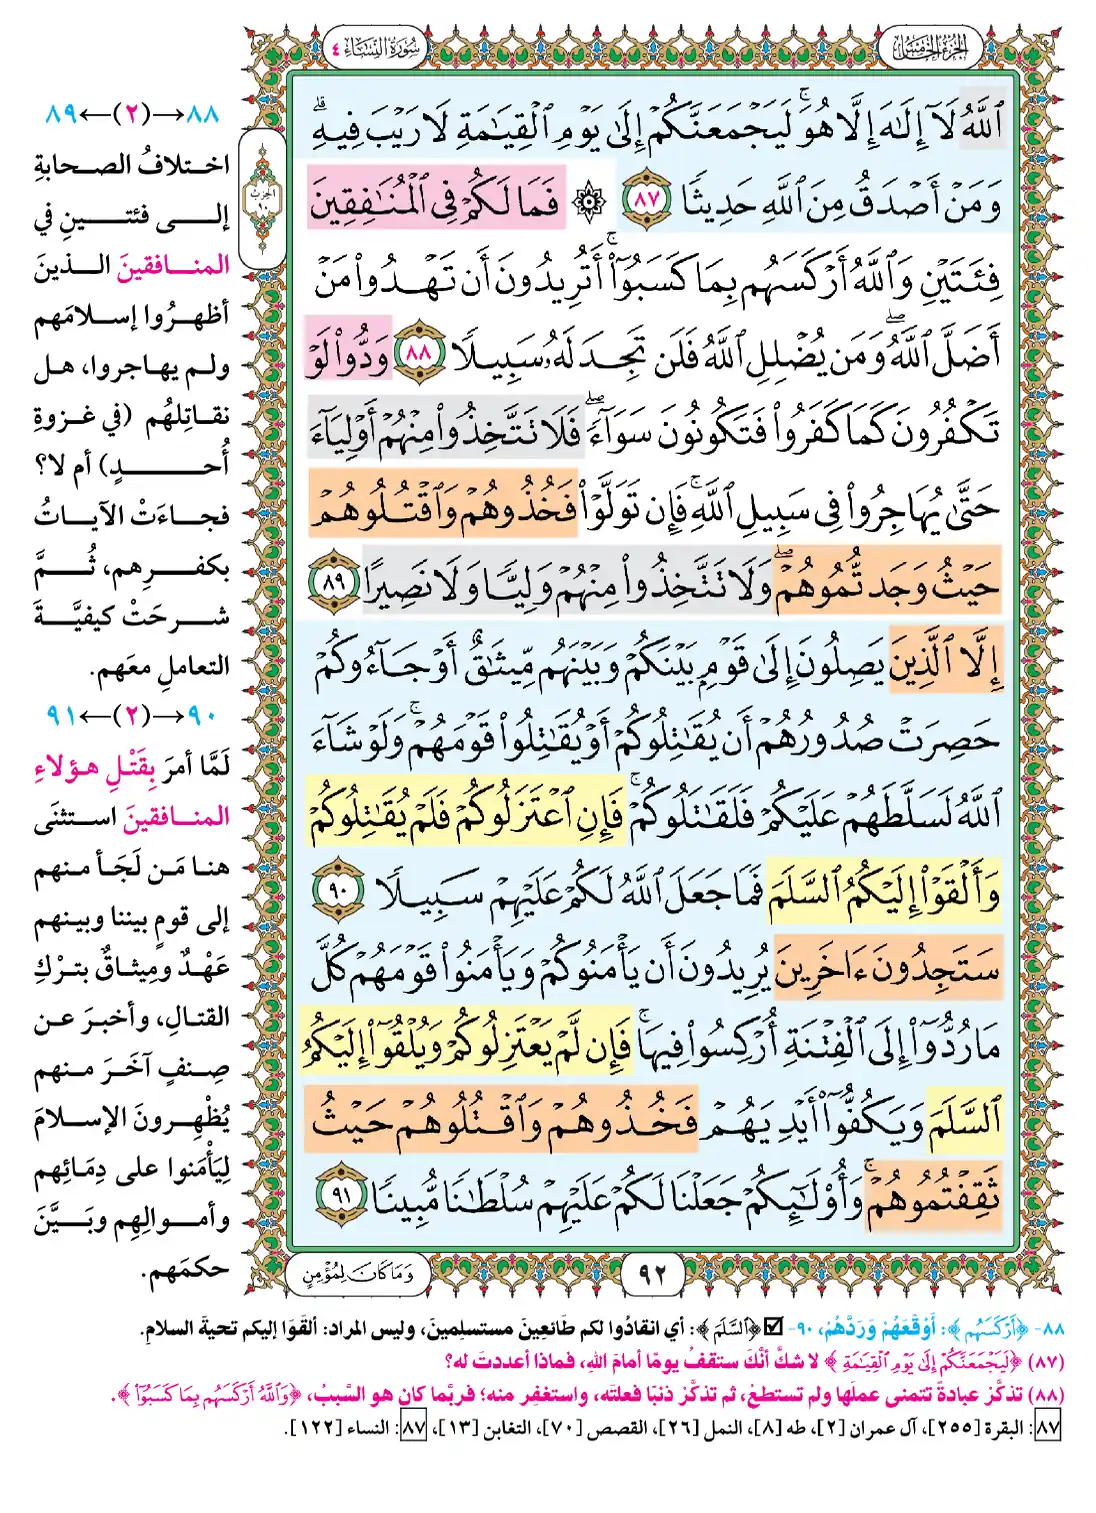 الجزء الخامس
سورة النساء ٤
ٱللَّهُ لَآ إِلَٰهَ إِلَّا هُوَۚ لَيَجْمَعَنَّكُمْ إِلَىٰ يَوْمِ ٱلْقِيَٰمَةِ لَا رَيْبَ فِيهِۗ
وَمَنْ أَصْدَقُ مِنَ ٱللَّهِ حَدِيثًا ٨٧ ۞ فَمَا لَكُمْ فِى ٱلْمُنَٰفِقِينَ
فِئَتَيْنِ وَٱللَّهُ أَرْكَسَهُم بِمَا كَسَبُوٓا۟ۚ أَتُرِيدُونَ أَن تَهْدُوا۟ مَنْ
أَضَلَّ ٱللَّهُۖ وَمَن يُضْلِلِ ٱللَّهُ فَلَن تَجِدَ لَهُۥ سَبِيلًا ٨٨ وَدُّوا۟ لَوْ
تَكْفُرُونَ كَمَا كَفَرُوا۟ فَتَكُونُونَ سَوَآءًۖ فَلَا تَتَّخِذُوا۟ مِنْهُمْ أَوْلِيَآءَ
حَتَّىٰ يُهَاجِرُوا۟ فِى سَبِيلِ ٱللَّهِۚ فَإِن تَوَلَّوْا۟ فَخُذُوهُمْ وَٱقْتُلُوهُمْ
حَيْثُ وَجَدتُّمُوهُمْۖ وَلَا تَتَّخِذُوا۟ مِنْهُمْ وَلِيًّا وَلَا نَصِيرًا ٨٩
إِلَّا ٱلَّذِينَ يَصِلُونَ إِلَىٰ قَوْمٍۭ بَيْنَكُمْ وَبَيْنَهُم مِّيثَٰقٌ أَوْ جَآءُوكُمْ
حَصِرَتْ صُدُورُهُمْ أَن يُقَٰتِلُوكُمْ أَوْ يُقَٰتِلُوا۟ قَوْمَهُمْۚ وَلَوْ شَآءَ
ٱللَّهُ لَسَلَّطَهُمْ عَلَيْكُمْ فَلَقَٰتَلُوكُمْۚ فَإِنِ ٱعْتَزَلُوكُمْ فَلَمْ يُقَٰتِلُوكُمْ
وَأَلْقَوْا۟ إِلَيْكُمُ ٱلسَّلَمَ فَمَا جَعَلَ ٱللَّهُ لَكُمْ عَلَيْهِمْ سَبِيلًا ٩٠
سَتَجِدُونَ ءَاخَرِينَ يُرِيدُونَ أَن يَأْمَنُوكُمْ وَيَأْمَنُوا۟ قَوْمَهُمْ كُلَّ
مَا رُدُّوٓا۟ إِلَى ٱلْفِتْنَةِ أُرْكِسُوا۟ فِيهَاۚ فَإِن لَّمْ يَعْتَزِلُوكُمْ وَيُلْقُوٓا۟ إِلَيْكُمُ
ٱلسَّلَمَ وَيَكُفُّوٓا۟ أَيْدِيَهُمْ فَخُذُوهُمْ وَٱقْتُلُوهُمْ حَيْثُ
ثَقِفْتُمُوهُمْۚ وَأُو۟لَٰٓئِكُمْ جَعَلْنَا لَكُمْ عَلَيْهِمْ سُلْطَٰنًا مُّبِينًا ٩١
٩٢
وَمَا كَانَ لِمُؤْمِنٍ
الحزب ١٠
٨٨→(٢)←٨٩
اختلافُ الصحابةِ
إلى فئتينِ في
المنافقينَ الذينَ
أظهرُوا إسلامَهم
ولم يهاجروا، هل
نقاتِلهُم (في غزوةِ
أُحدٍ) أم لا؟
فجاءَتْ الآياتُ
بكفرِهم، ثُمَّ
شرحَتْ كيفيَّةَ
التعاملِ معَهم.
٩٠→(٢)←٩١
لَمَّا أمرَ بِقَتْلِ هؤلاءِ
المنافقينَ استثنَى
هنا مَن لَجَأ منهم
إلى قومٍ بيننا وبينهم
عَهْدٌ ومِيثاقٌ بتركِ
القتالِ، وأخبرَ عن
صِنفٍ آخَرَ منهم
يُظْهِرونَ الإسلامَ
لِيَأْمَنوا على دِمَائِهم
وأموالِهِم وبَيَّنَ
حكمَهم.
٨٨- ﴿أَرْكَسَهُم﴾: أَوْقَعَهُمْ وَرَدَّهُمْ، ٩٠- ☑ ﴿ٱلسَّلَمَ﴾: أي انقادُوا لكم طَائعِينَ مستسلِمينَ، وليس المراد: ألقَوا إليكم تحيةَ السلامِ.
(٨٧) ﴿لَيَجْمَعَنَّكُمْ إِلَىٰ يَوْمِ ٱلْقِيَٰمَةِ﴾ لا شكَّ أنَّكَ ستقفُ يومًا أمامَ اللهِ، فماذا أعددتَ له؟
(٨٨) تذكَّرْ عبادةً تتمنى عملَها ولم تستطعْ، ثم تذكَّرْ ذنبًا فعلتَه، واستغفِر منه؛ فربَّما كان هو السَّببُ، ﴿وَٱللَّهُ أَرْكَسَهُم بِمَا كَسَبُوٓا۟﴾.
٨٧: البقرة [٢٥٥]، آل عمران [٢]، طه [٨]، النمل [٢٦]، القصص [٧٠]، التغابن [١٣]، ٨٧: النساء [١٢٢].